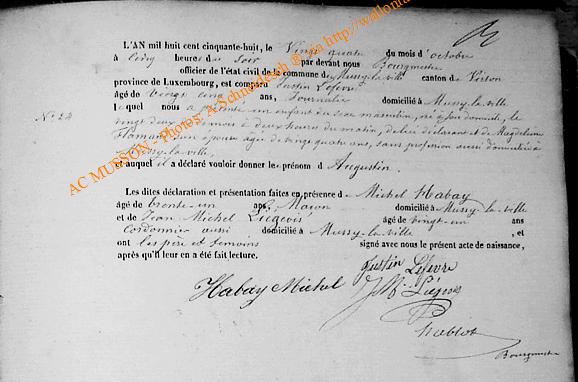 L'AN mil huit cent cinquante-huit, le Vingt quatre du mois d'octobre
à cinq heures du soir par devant nous Bourgmestre
officier de l'état civil de la commune de Mussy-la-ville canton de Virton
province de Luxembourg, est comparu Justin Lefevre
âgé de vingt cinq ans, Journalier domicilié à Mussy-la-ville
lequel nous a présenté un enfant du sexe masculin, né à son domicile, le
N° 24
vingt deux du mois à deux heures du matin, de lui déclarant et de Magdeleine
Flamant son épouse agée de vingt quatre ans, sans profession aussi domiciliée à
Mussy-la-ville,
et auquel il a déclaré vouloir donner le prénom d'Augustin.
Les dites déclaration et présentation faites en présence de Michel Habay
âgé de trente-un ans, Maçon domicilié à Mussy-la-ville
et de Jean Michel Liégeois âgé de vingt-un ans
Cordonnier aussi domicilié à Mussy-la-ville et
ont les père et témoins signé avec nous le présent acte de naissance,
après qu'il leur en a été fait lecture.
Justin Lefevre
Habay Michel J M Liégeois
Bourgmestre
AC MUSSON - Photos: A.Schneidesch @ via http://wallonia